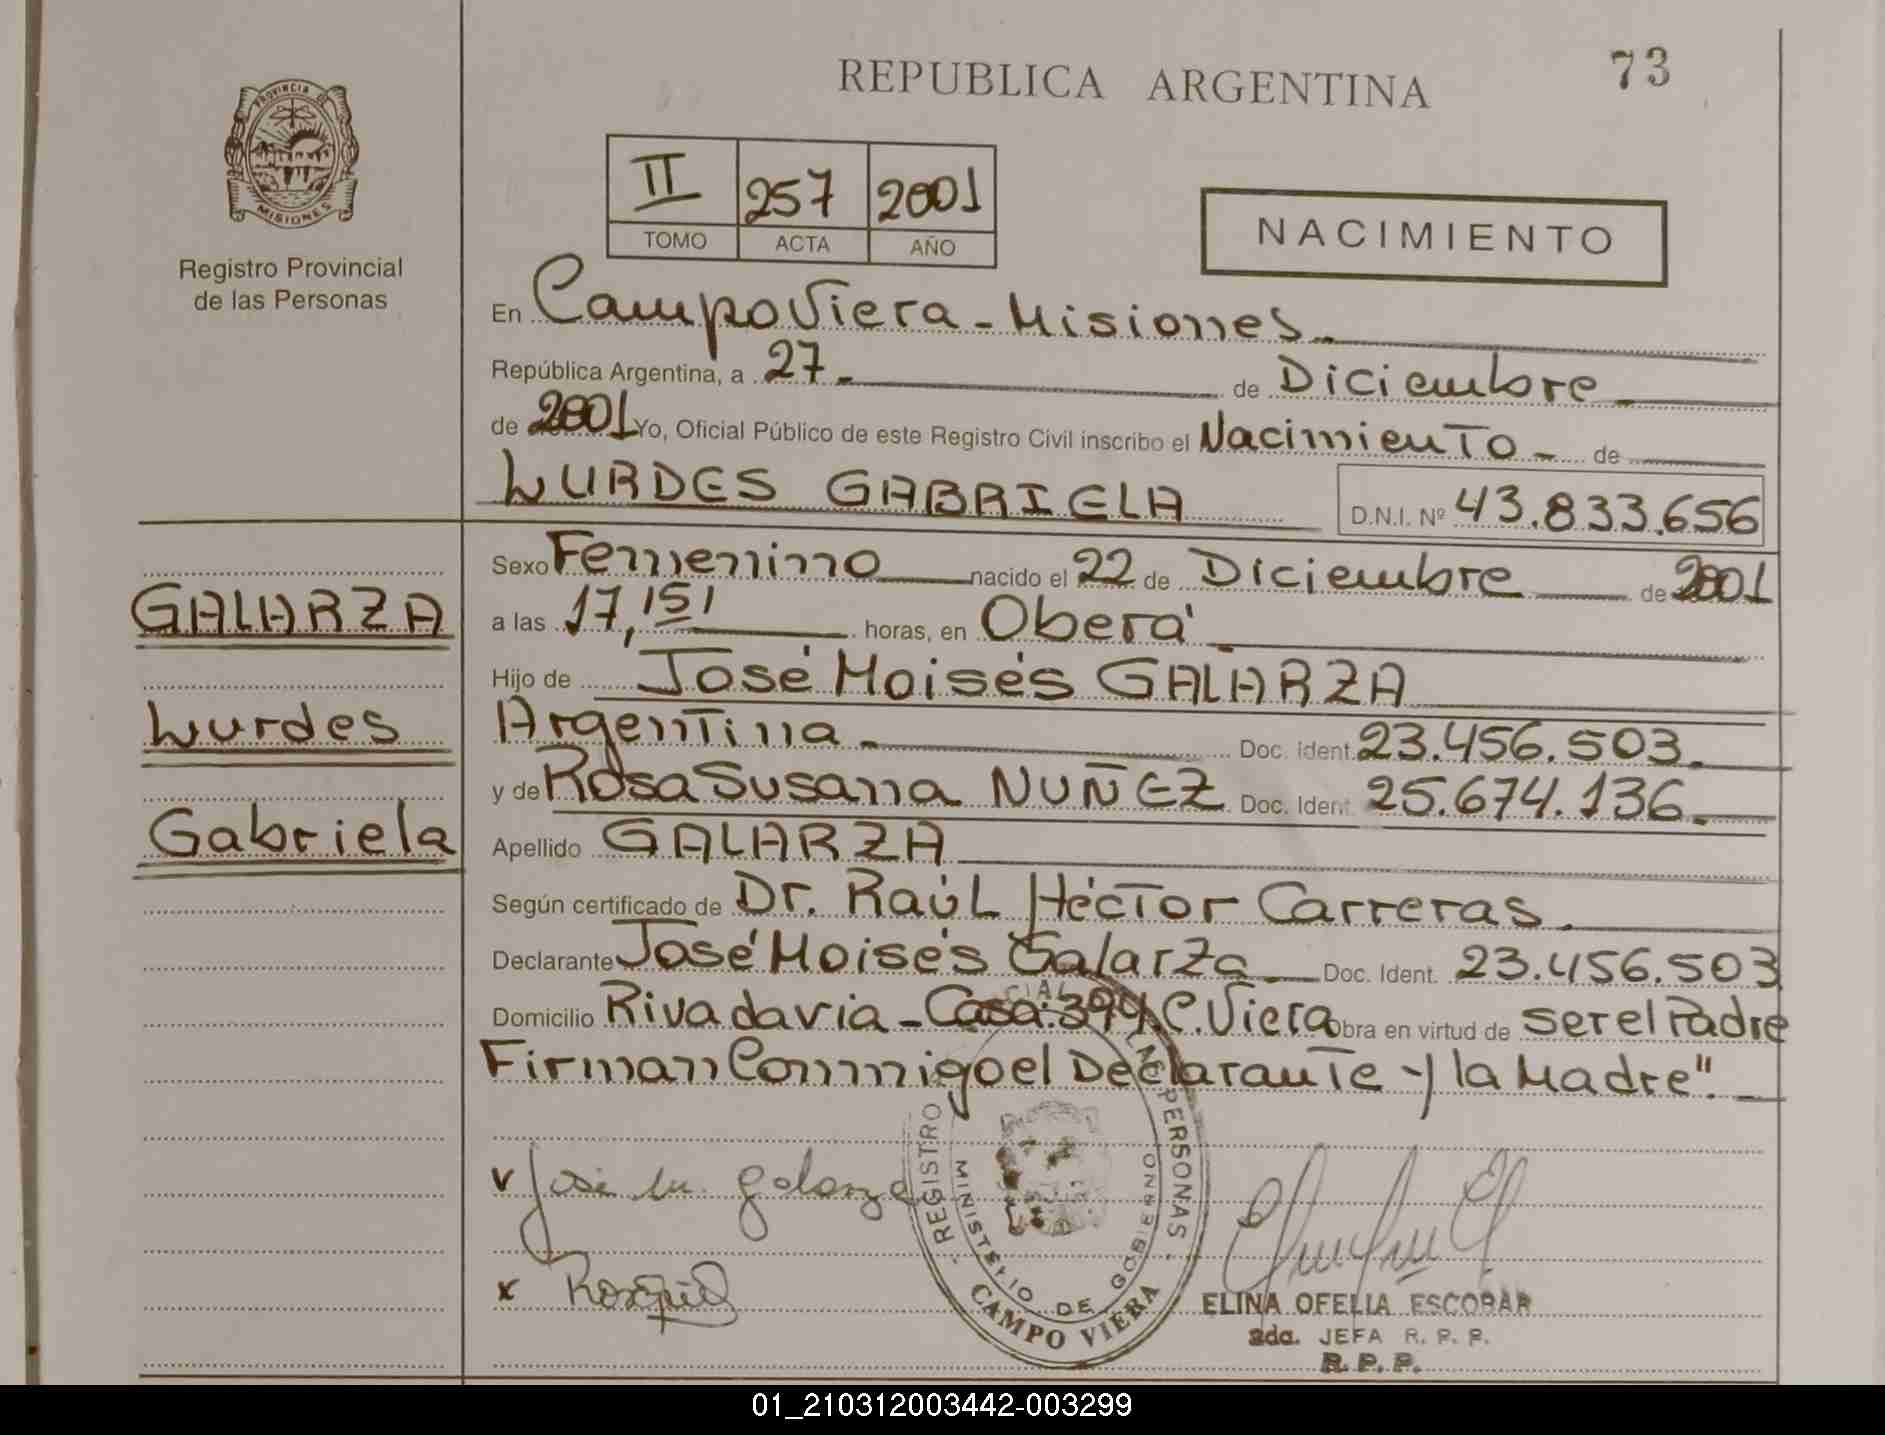 REPUBLICA ARGENTINA
73
PROVINCIA DE
MISIONES
Registro Provincial
de las Personas
II 257 2001
TOMO ACTA AÑO
NACIMIENTO
En Campo Viera - Misiones
República Argentina, a 27 de Diciembre
de 2001 Yo, Oficial Público de este Registro Civil inscribo el Nacimiento de
LURDES GABRIELA
D.N.I. Nº 43.833.656
Sexo Femenino nacido el 22 de Diciembre de 2001
GALARZA
a las 17,15 horas, en Oberá
Hijo de José Moisés GALARZA
Lurdes
Argentina Doc. Ident. 23.456.503
y de Rosa Susana NUÑEZ Doc. Ident. 25.674.136
Gabriela
Apellido GALARZA
Según certificado de Dr. Raúl Héctor Carreras
Declarante José Moisés Galarza Doc. Ident. 23.456.503
Domicilio Rivadavia - Casa: 399. C. Viera Obra en virtud de ser el Padre
Firman Conmigo el Declarante y la Madre".
José M. Galarza
REGISTRO PROVINCIAL DE LAS PERSONAS
MINISTERIO DE GOBIERNO
CAMPO VIERA
ELINA OFELIA ESCOBAR
2da. JEFA R. P. P.
R. P. P.
01_210312003442-003299